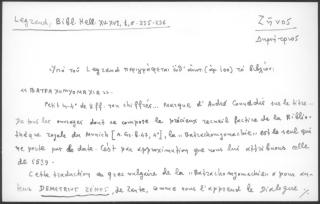 Legrand, Bibl. Hell. XV-XVI, 1, σ. 235-236
Ζῆνος
Δημήτριος
Ὑπὸ τοῦ Legrand περιγράφεται ὑπ' ἀριθ. (100) τὸ βιβλίον:
«ΒΑΤΡΑΧΟΜΥΟΜΑΧΙΑ».
Petit in-4° de ff. non chiffrés. Marque d'André Counadis sur le titre.
De tous les ouvrages dont se compose le précieux recueil factice de la Biblio-
thèque royale du Munich [A. Gr. B. 43, 4°], la «Batrachomyomachie» est le seul qui
ne porte pas de date. C'est par approximation que nous lui attribuons celle
de 1539.
Cette traduction en grec vulgaire de la «Batrachomyomachie» a pour au-
teur DEMETRIUS ZENOS, de Zante, comme nous l'apprend le Dialogue